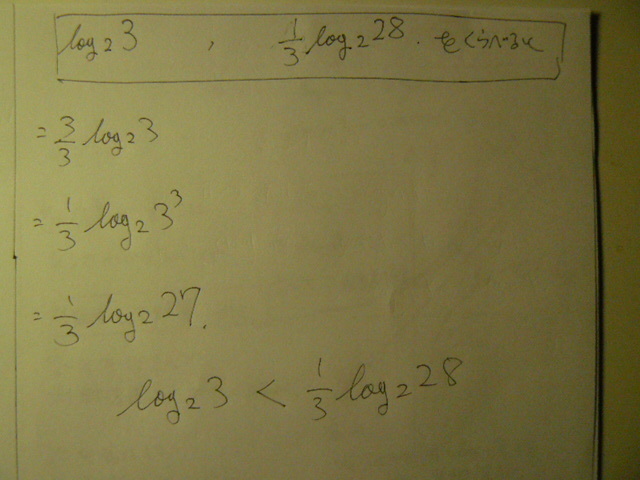 log₂3 , 1/3 log₂28. をくらべると
= 3/3 log₂3
= 1/3 log₂3³
= 1/3 log₂27.
log₂3 < 1/3 log₂28